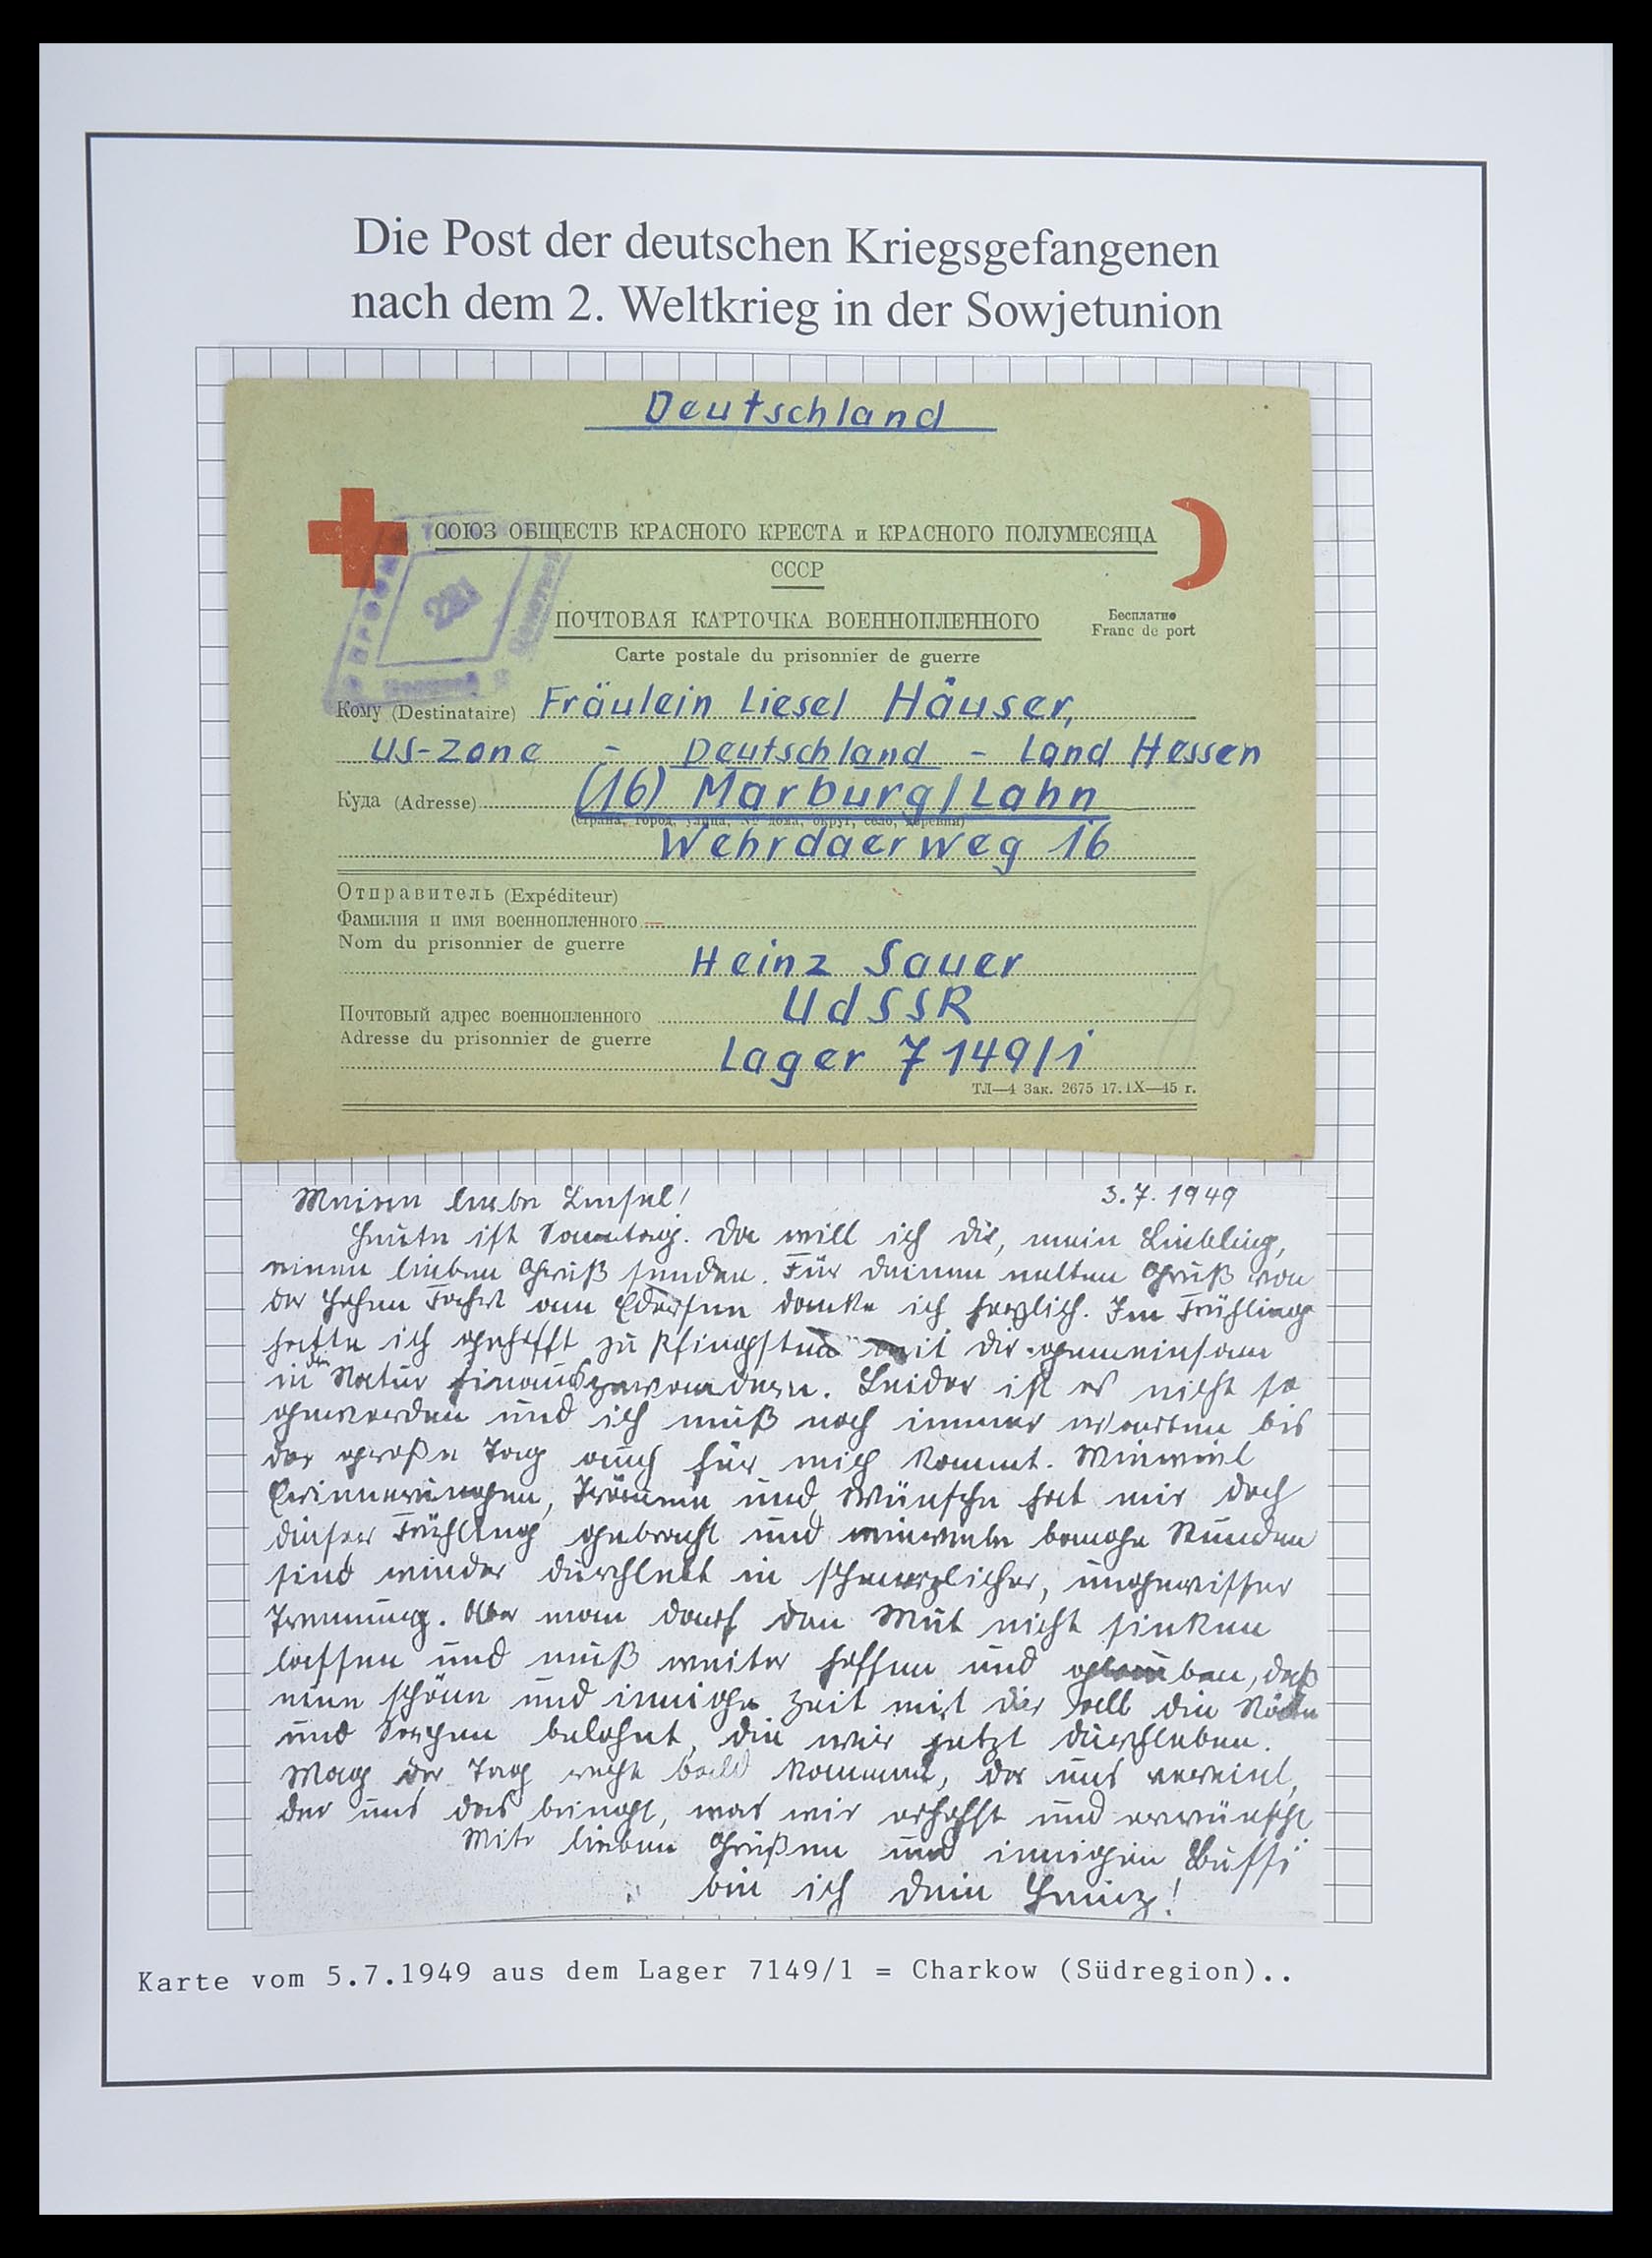 Die Post der deutschen Kriegsgefangenen
nach dem 2. Weltkrieg in der Sowjetunion
Deutschland
СОЮЗ ОБЩЕСТВ КРАСНОГО КРЕСТА и КРАСНОГО ПОЛУМЕСЯЦА
СССР
ПОЧТОВАЯ КАРТОЧКА ВОЕННОПЛЕННОГО
Бесплатно
Franc de port
Carte postale du prisonnier de guerre
Кому (Destinataire) Fräulein Liesel Häuser,
US-Zone - Deutschland - Land Hessen
Куда (Adresse) (16) Marburg/Lahn
(страна, город, улица, № дома, округ, село, деревня)
Wehrdaerweg 16
Отправитель (Expéditeur)
Фамилия и имя военнопленного
Nom du prisonnier de guerre
Heinz Sauer
Почтовый адрес военнопленного UdSSR
Adresse du prisonnier de guerre
Lager 7149/1
ТЛ—4 Зак. 2675 17.IX—45 г.
Meine liebe Liesel! 3.7.1949
Heute ist Sonntag. Da will ich dir, mein Liebling,
einen lieben Gruß senden. Für deinen netten Gruß von
der hohen Fahrt am Edersee danke ich herzlich. Im Frühling
hatte ich gehofft zu Pfingsten mit dir gemeinsam
in der Natur hinauszuwandern. Leider ist es nicht so
geworden und ich muß noch immer warten bis
der große Tag auch für mich kommt. Wieviel
Erinnerungen, Träume und Wünsche hat mir doch
dieser Frühling gebracht und wieviele Stunden
sind wieder durchlebt in schmerzlicher, ungewisser
Trennung. Aber man darf den Mut nicht sinken
lassen und muß weiter hoffen und glauben, daß
eine schöne und innige Zeit mit dir all die Nöte
und Sorgen belohnt, die wir jetzt durchleben.
Mag der Tag recht bald kommen, der uns vereint,
der uns das bringt, was wir erhofft und erwünscht
Mit lieben Grüßen und innigen Bussi
bin ich dein Heinz!
Karte vom 5.7.1949 aus dem Lager 7149/1 = Charkow (Südregion)..